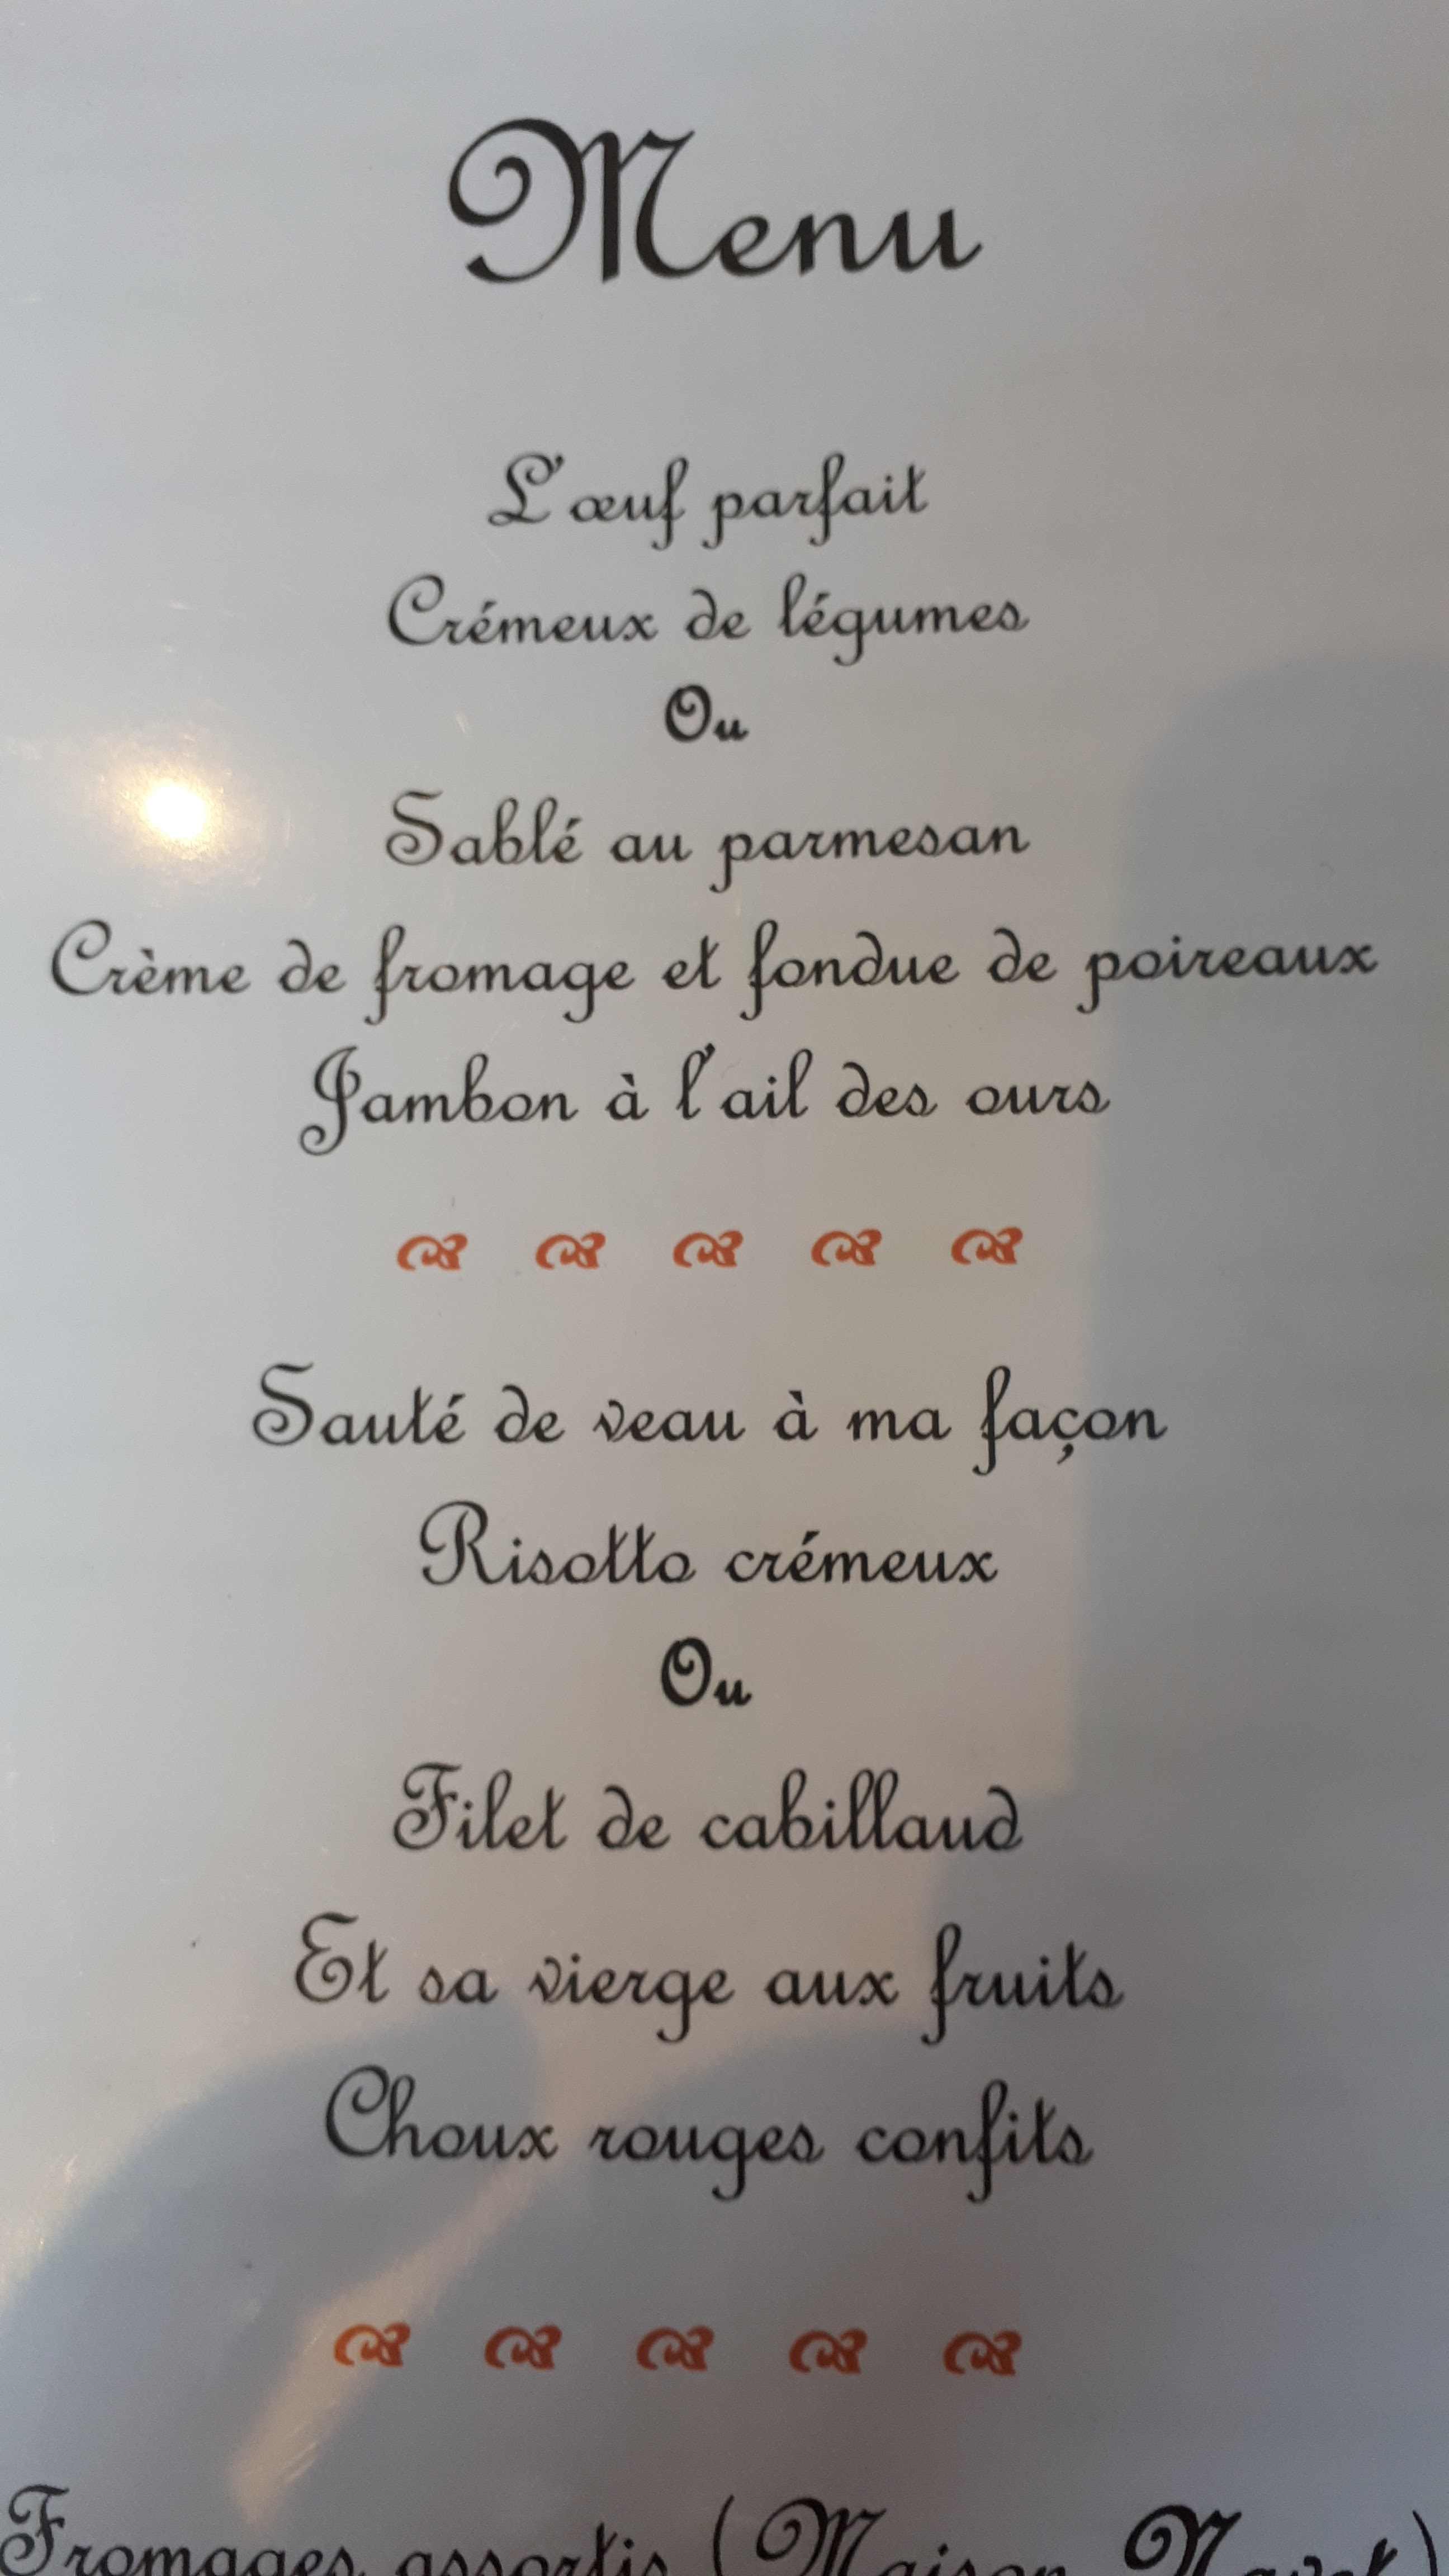 Menu
L'œuf parfait
Crémeux de légumes
Ou
Sablé au parmesan
Crème de fromage et fondue de poireaux
Jambon à l'ail des ours
Sauté de veau à ma façon
Risotto crémeux
Ou
Filet de cabillaud
Et sa vierge aux fruits
Choux rouges confits
Fromages assortis (Maison